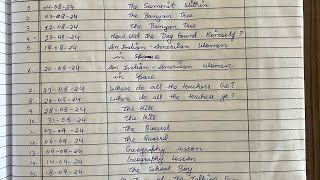 2. 04-08-24 The Summit Within
3. 07-08-24 The Banyan Tree
4. 12-08-24 The Banyan Tree
How did the Dog Found Himself?
5. 19-08-24 An Indian-American Women
in Space
6. 20-08-24 An Indian-American Women
in Space
7. 22-08-24 Where do all the Teachers Go?
8. 26-08-24 Where do all the teachers go?
28-08-24 The Kite
31-08-24 The Kite
03-09-24 The Quarrel
09-24 The Quarrel
09-09-24 Geography Lesson
09-24 Geography Lesson
09-24 The School Boy
of the Talking